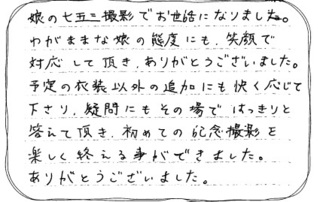 娘の七五三撮影でお世話になりました。
わがままな娘の態度にも、笑顔で
対応して頂き、ありがとうございました。
予定の衣装以外の追加にも快く応じて
下さり、疑問にもその場ではっきりと
答えて頂き、初めての記念撮影を
楽しく終える事ができました。
ありがとうございました。